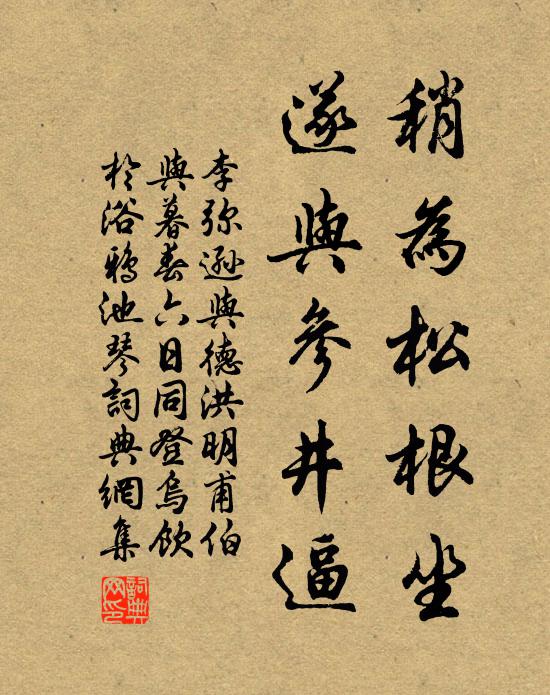 稍為松根坐
遂與參井逼
李弥遜與德洪明甫伯
與暮春六日同登烏飲
於浴鴉池琴詞典網集
詞典网印